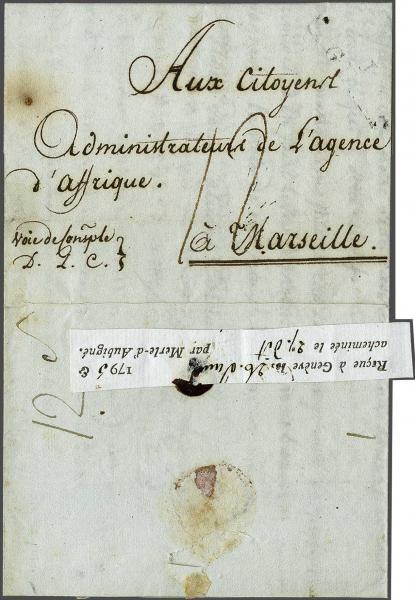 Aux Citoyens
Administrateurs de L'agence
d'affrique.
Voie de Consple
D. L. C.
à Marseille.
Reçue à Genève le 26. Juin 1795 &
acheminée le 27. dit par Merle-d'Aubigné.